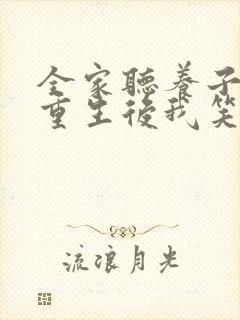 全家聽養子
重生後我笑
流浪月光